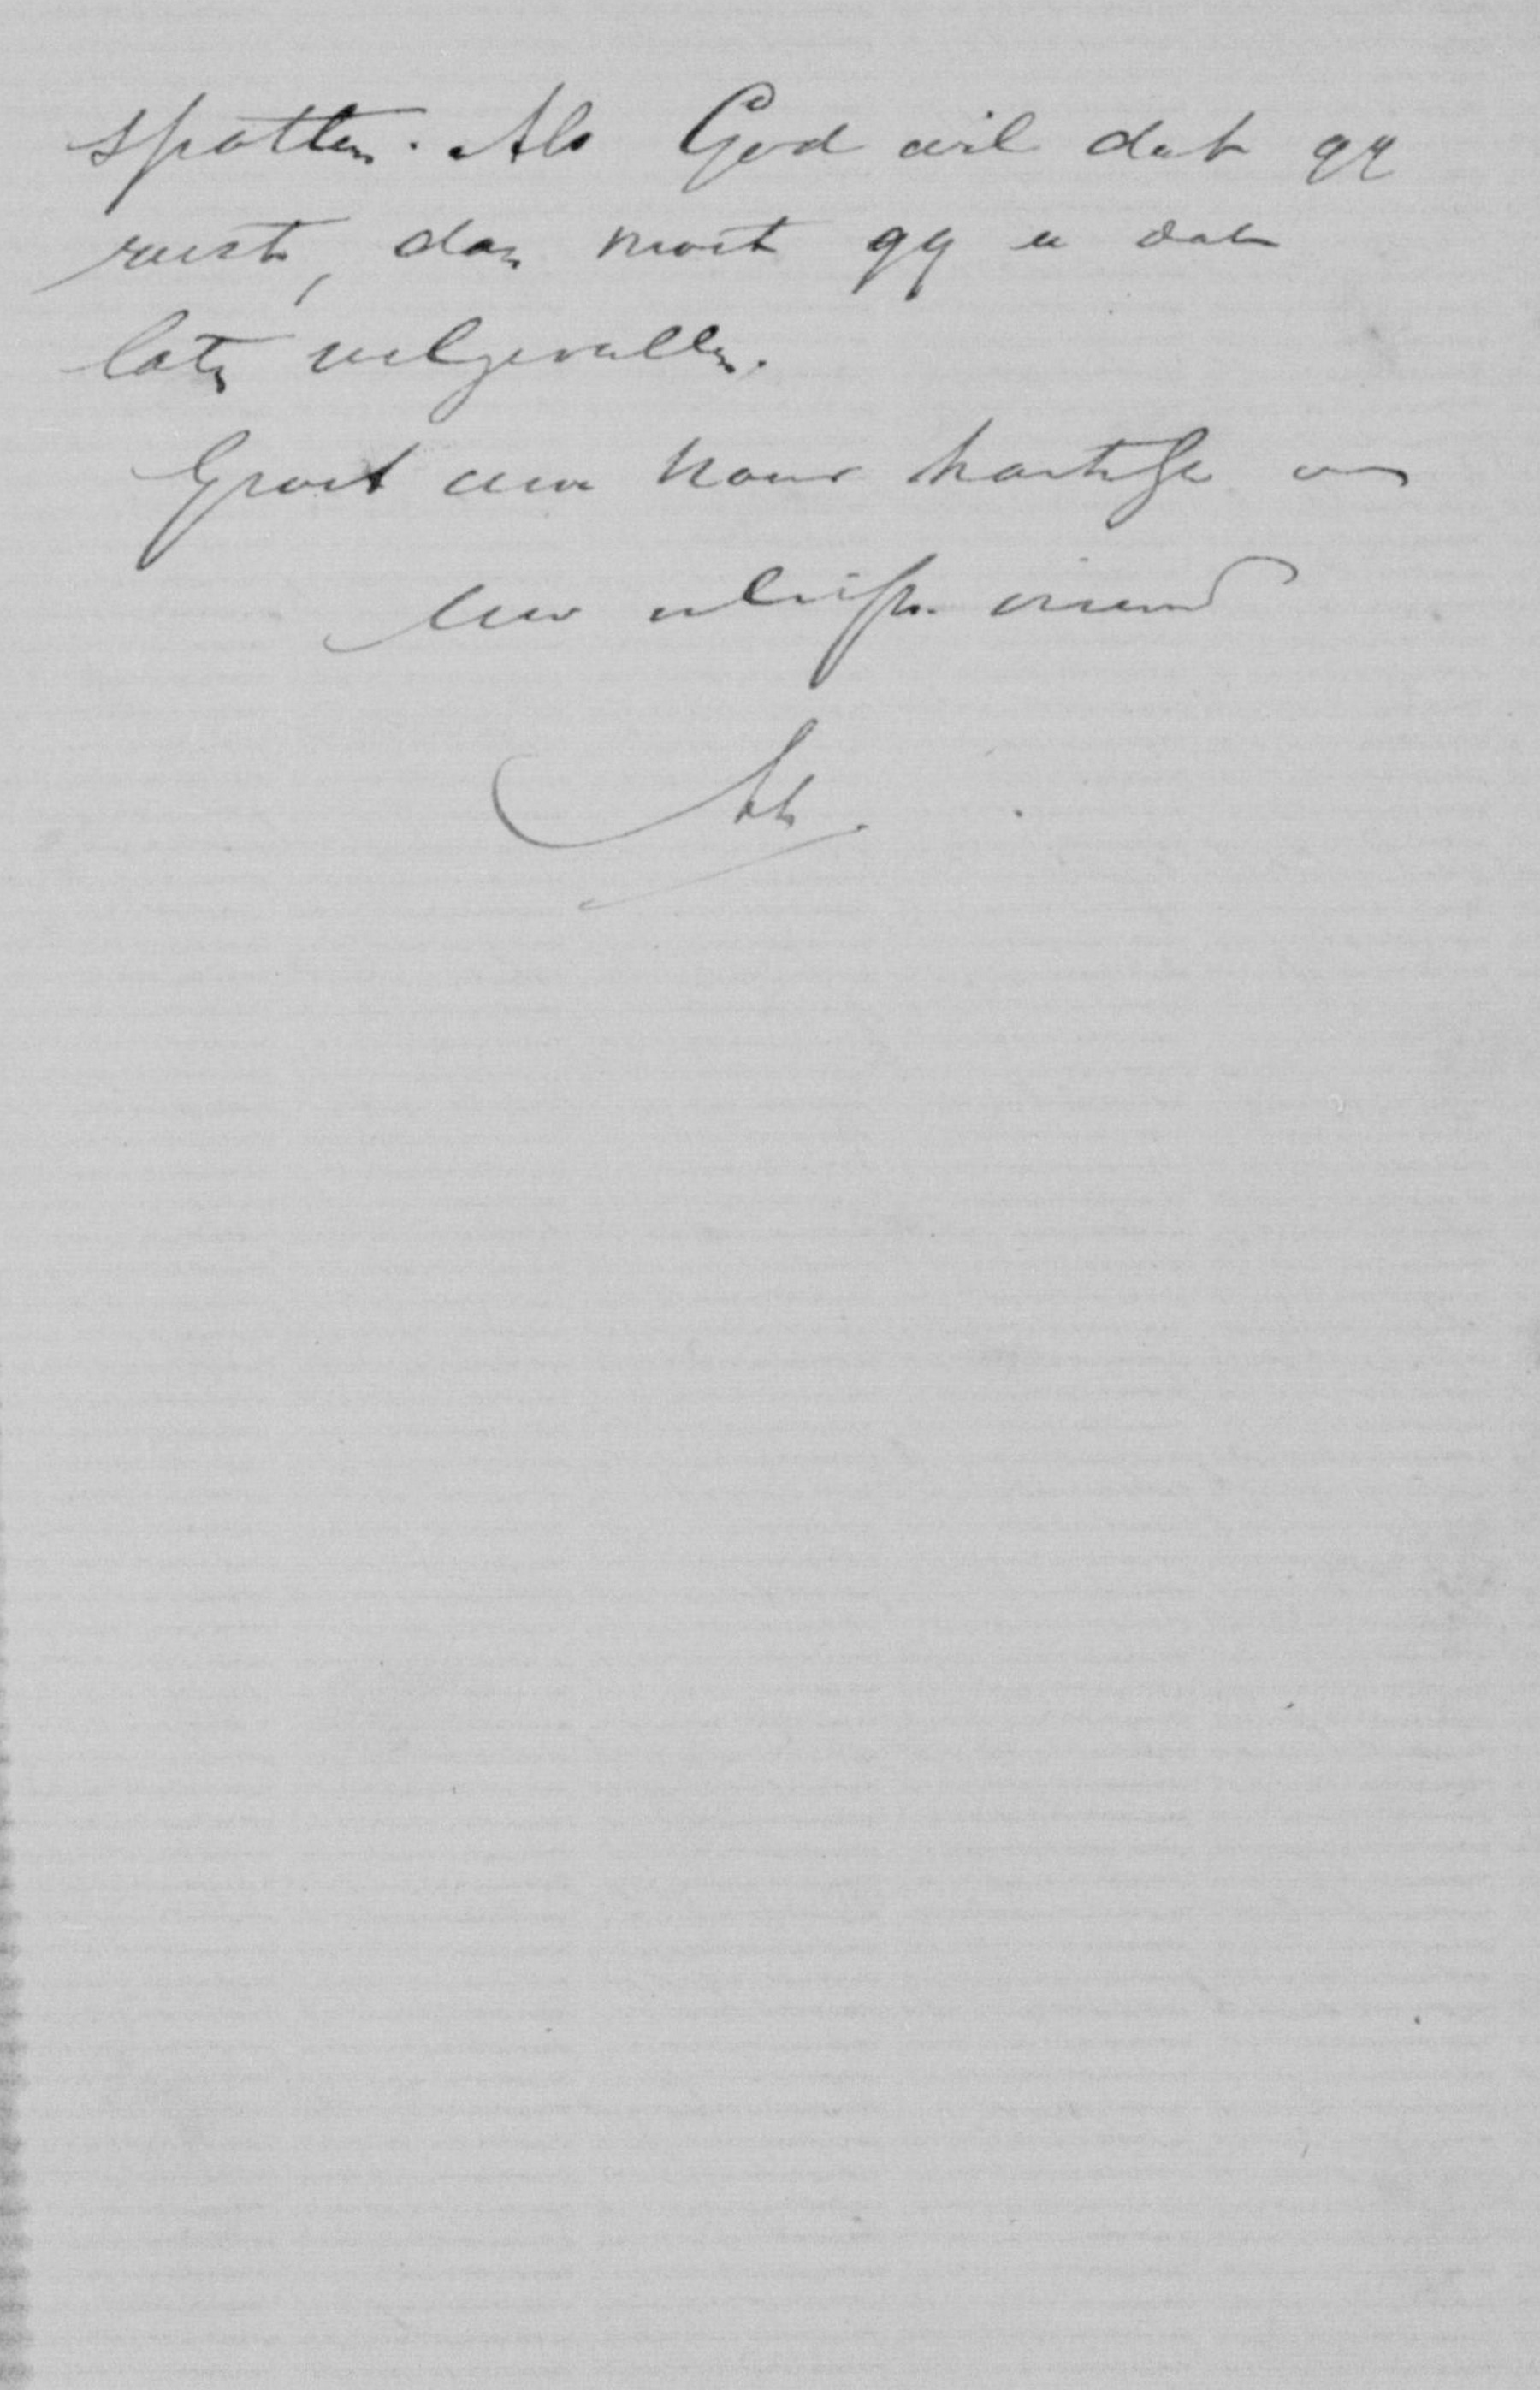 spotten. Als God wil dat gy
rust, dan moet gy u dat
laten welgevallen.
Groet uwe vrouw hartelyk van
Uw vriend